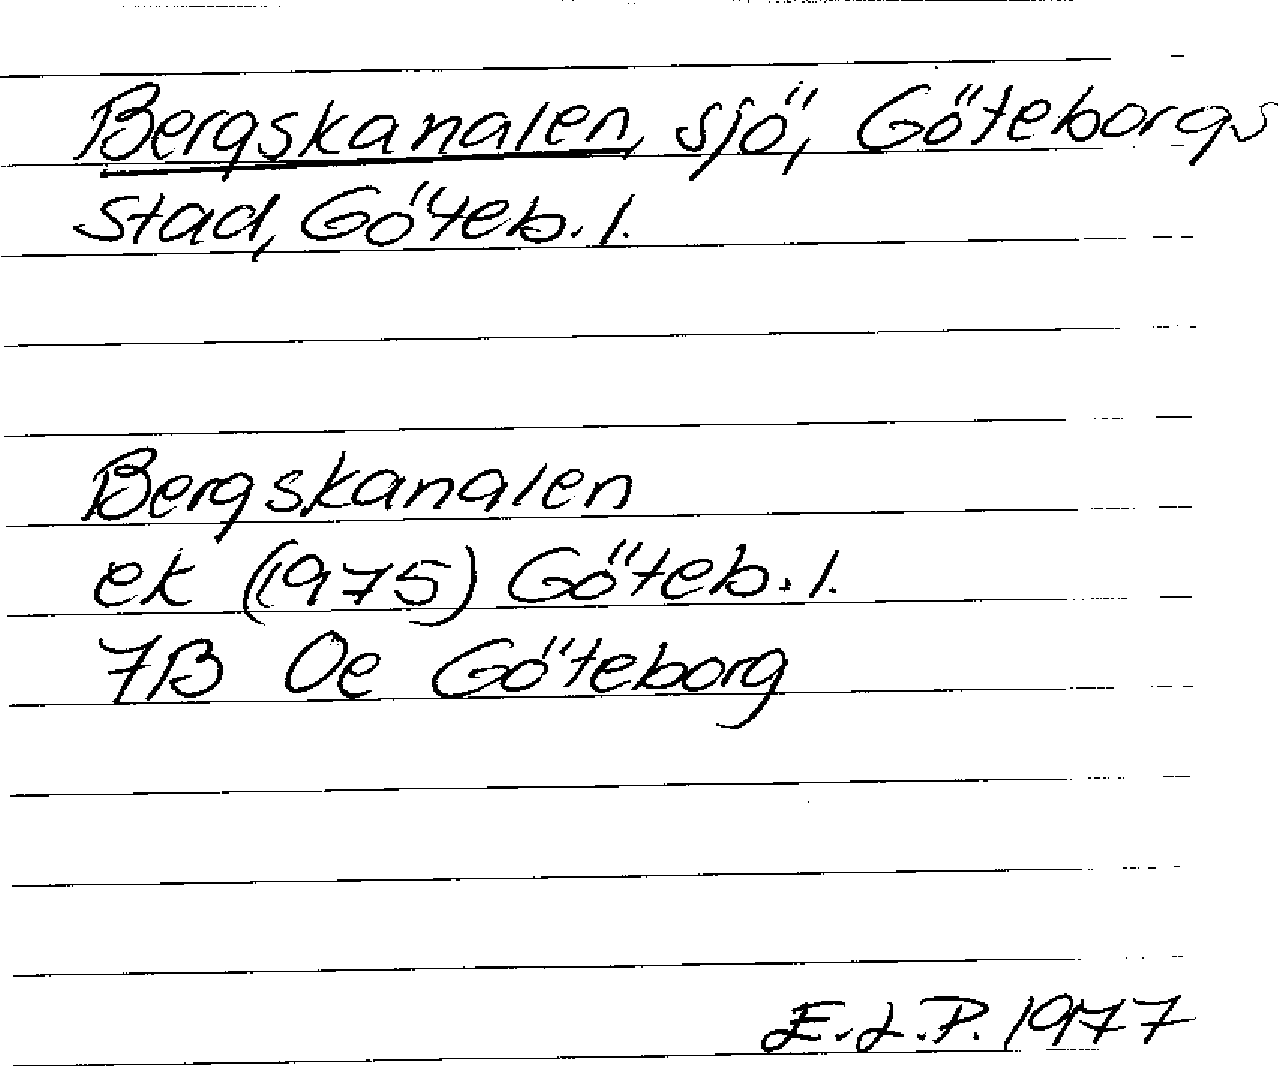 Bergskanalen, sjö, Göteborgs
stad, Göteb. l.
Bergskanalen
ek (1975) Göteb. l.
7B Oe Göteborg
E.L.P. 1977